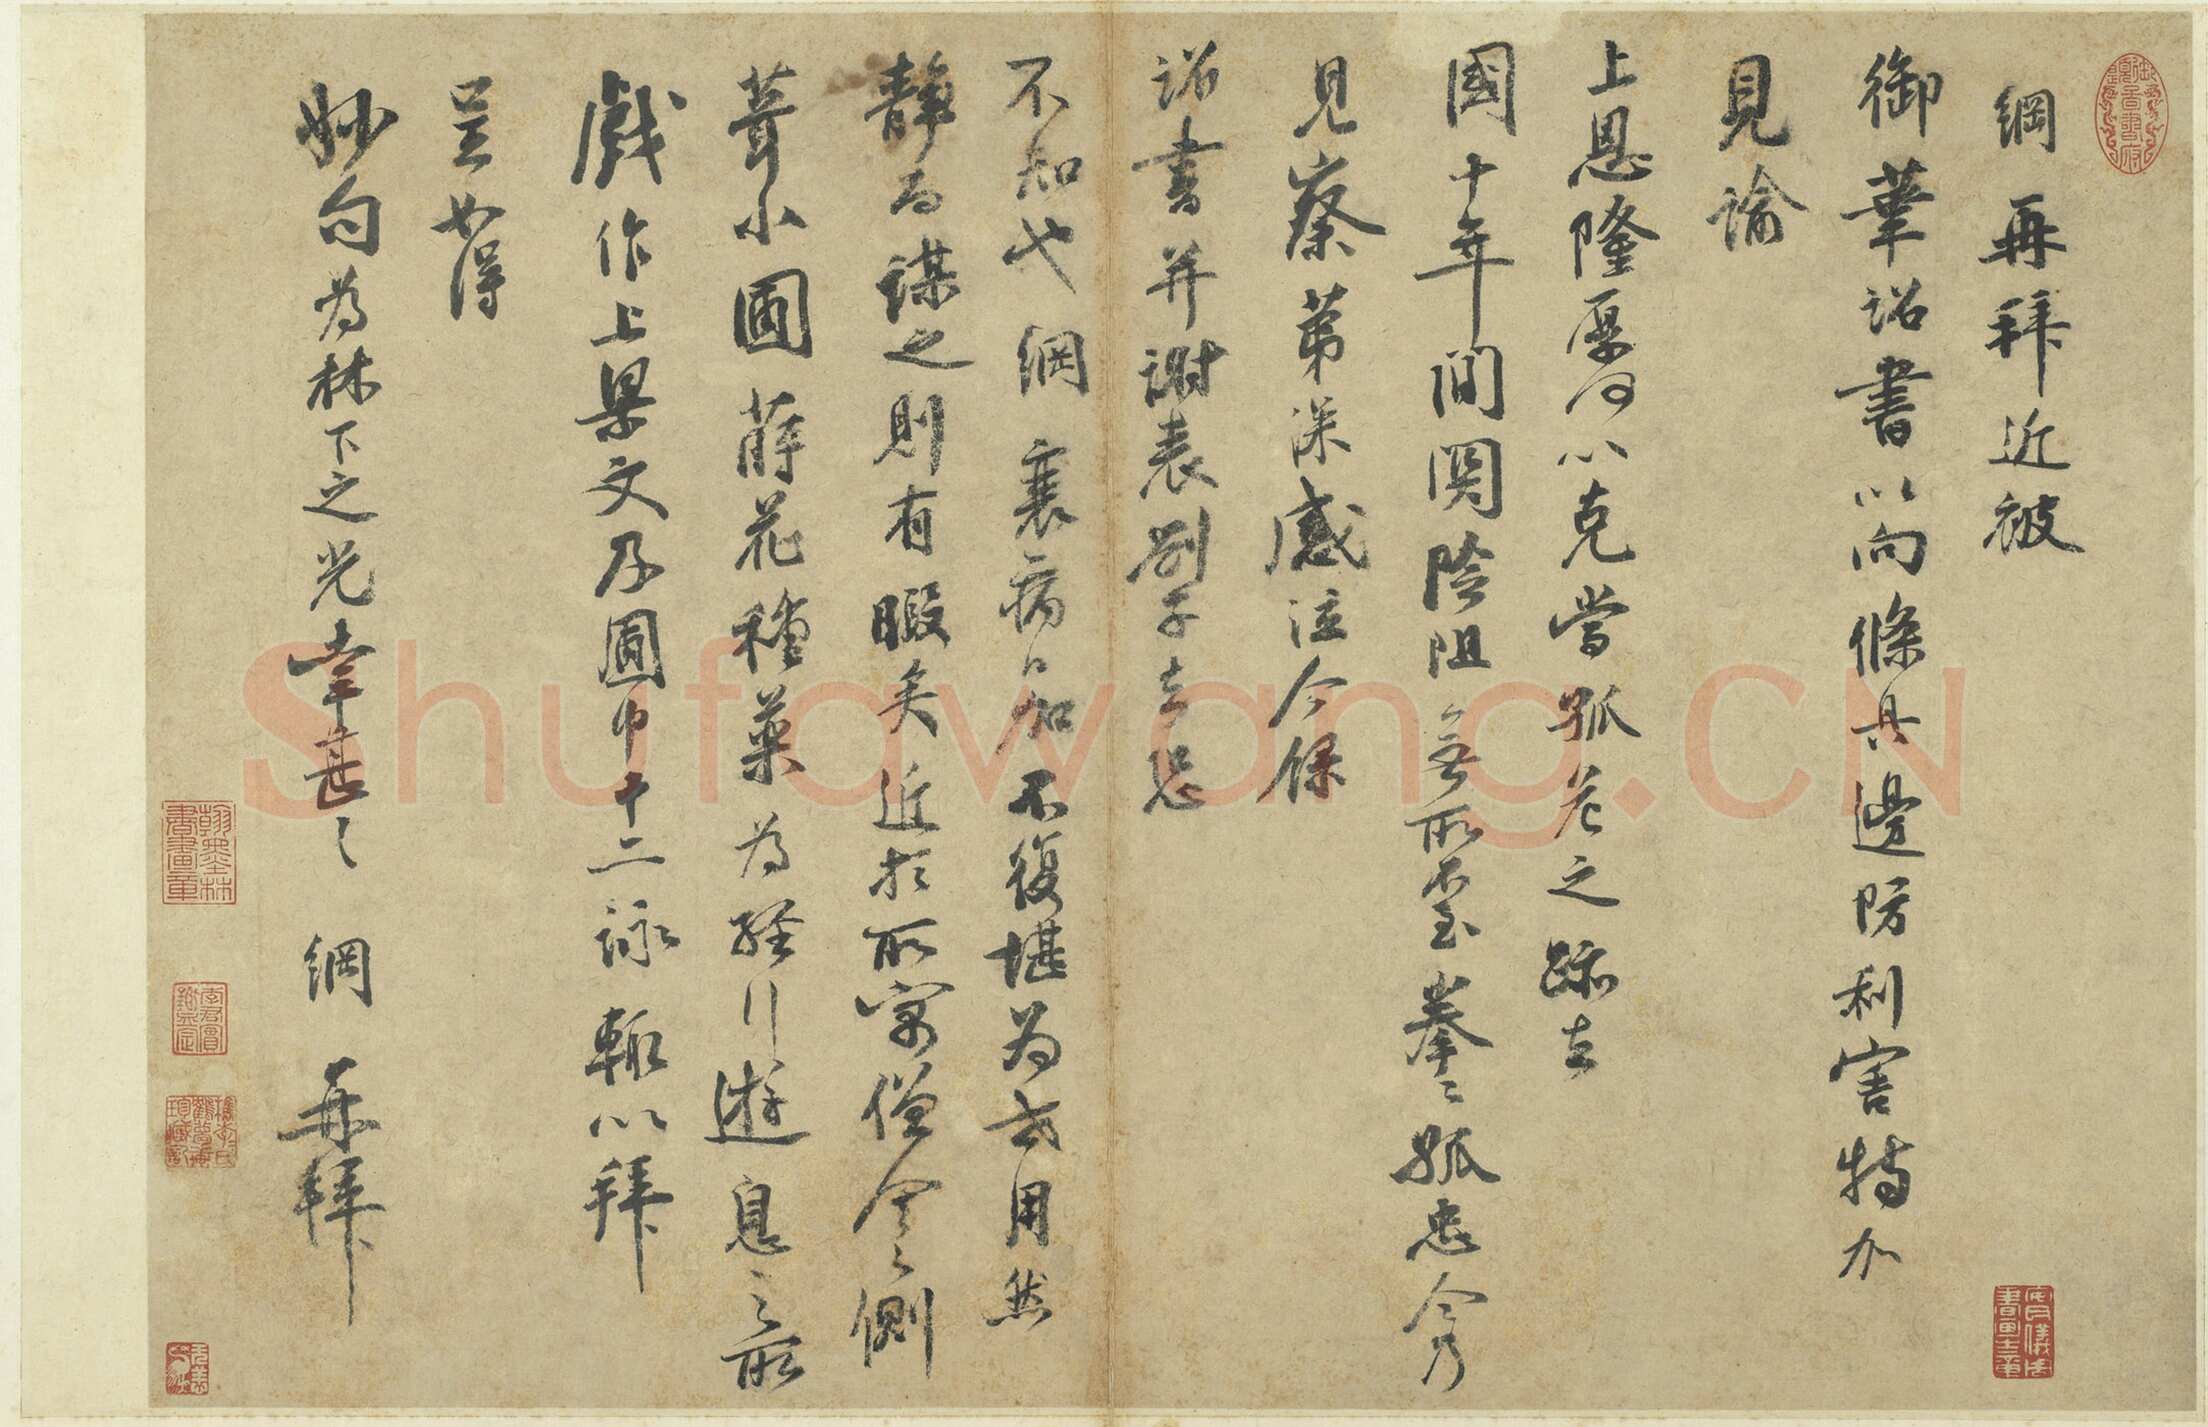 綱再拜近被
御筆詔書以向條具邊防利害特加
見諭
上恩隆厚何以克當孤危之跡去
國十年間關險阻無所不至拳拳孤忠今乃
見察第深感泣今錄
詔書并謝表劄子去恐
不知也綱衰病日加不復堪為世用然
靜而謀之則有暇矣近於所寓僧舍之側
葺小圃蒔花種菜為經行遊息之所
戲作上梁文及圃中十二詠輒以拜
呈如得
妙句為林下之光幸甚甚綱再拜
翰墨林書畫章
安儀周書畫之章
Shufawang.CN